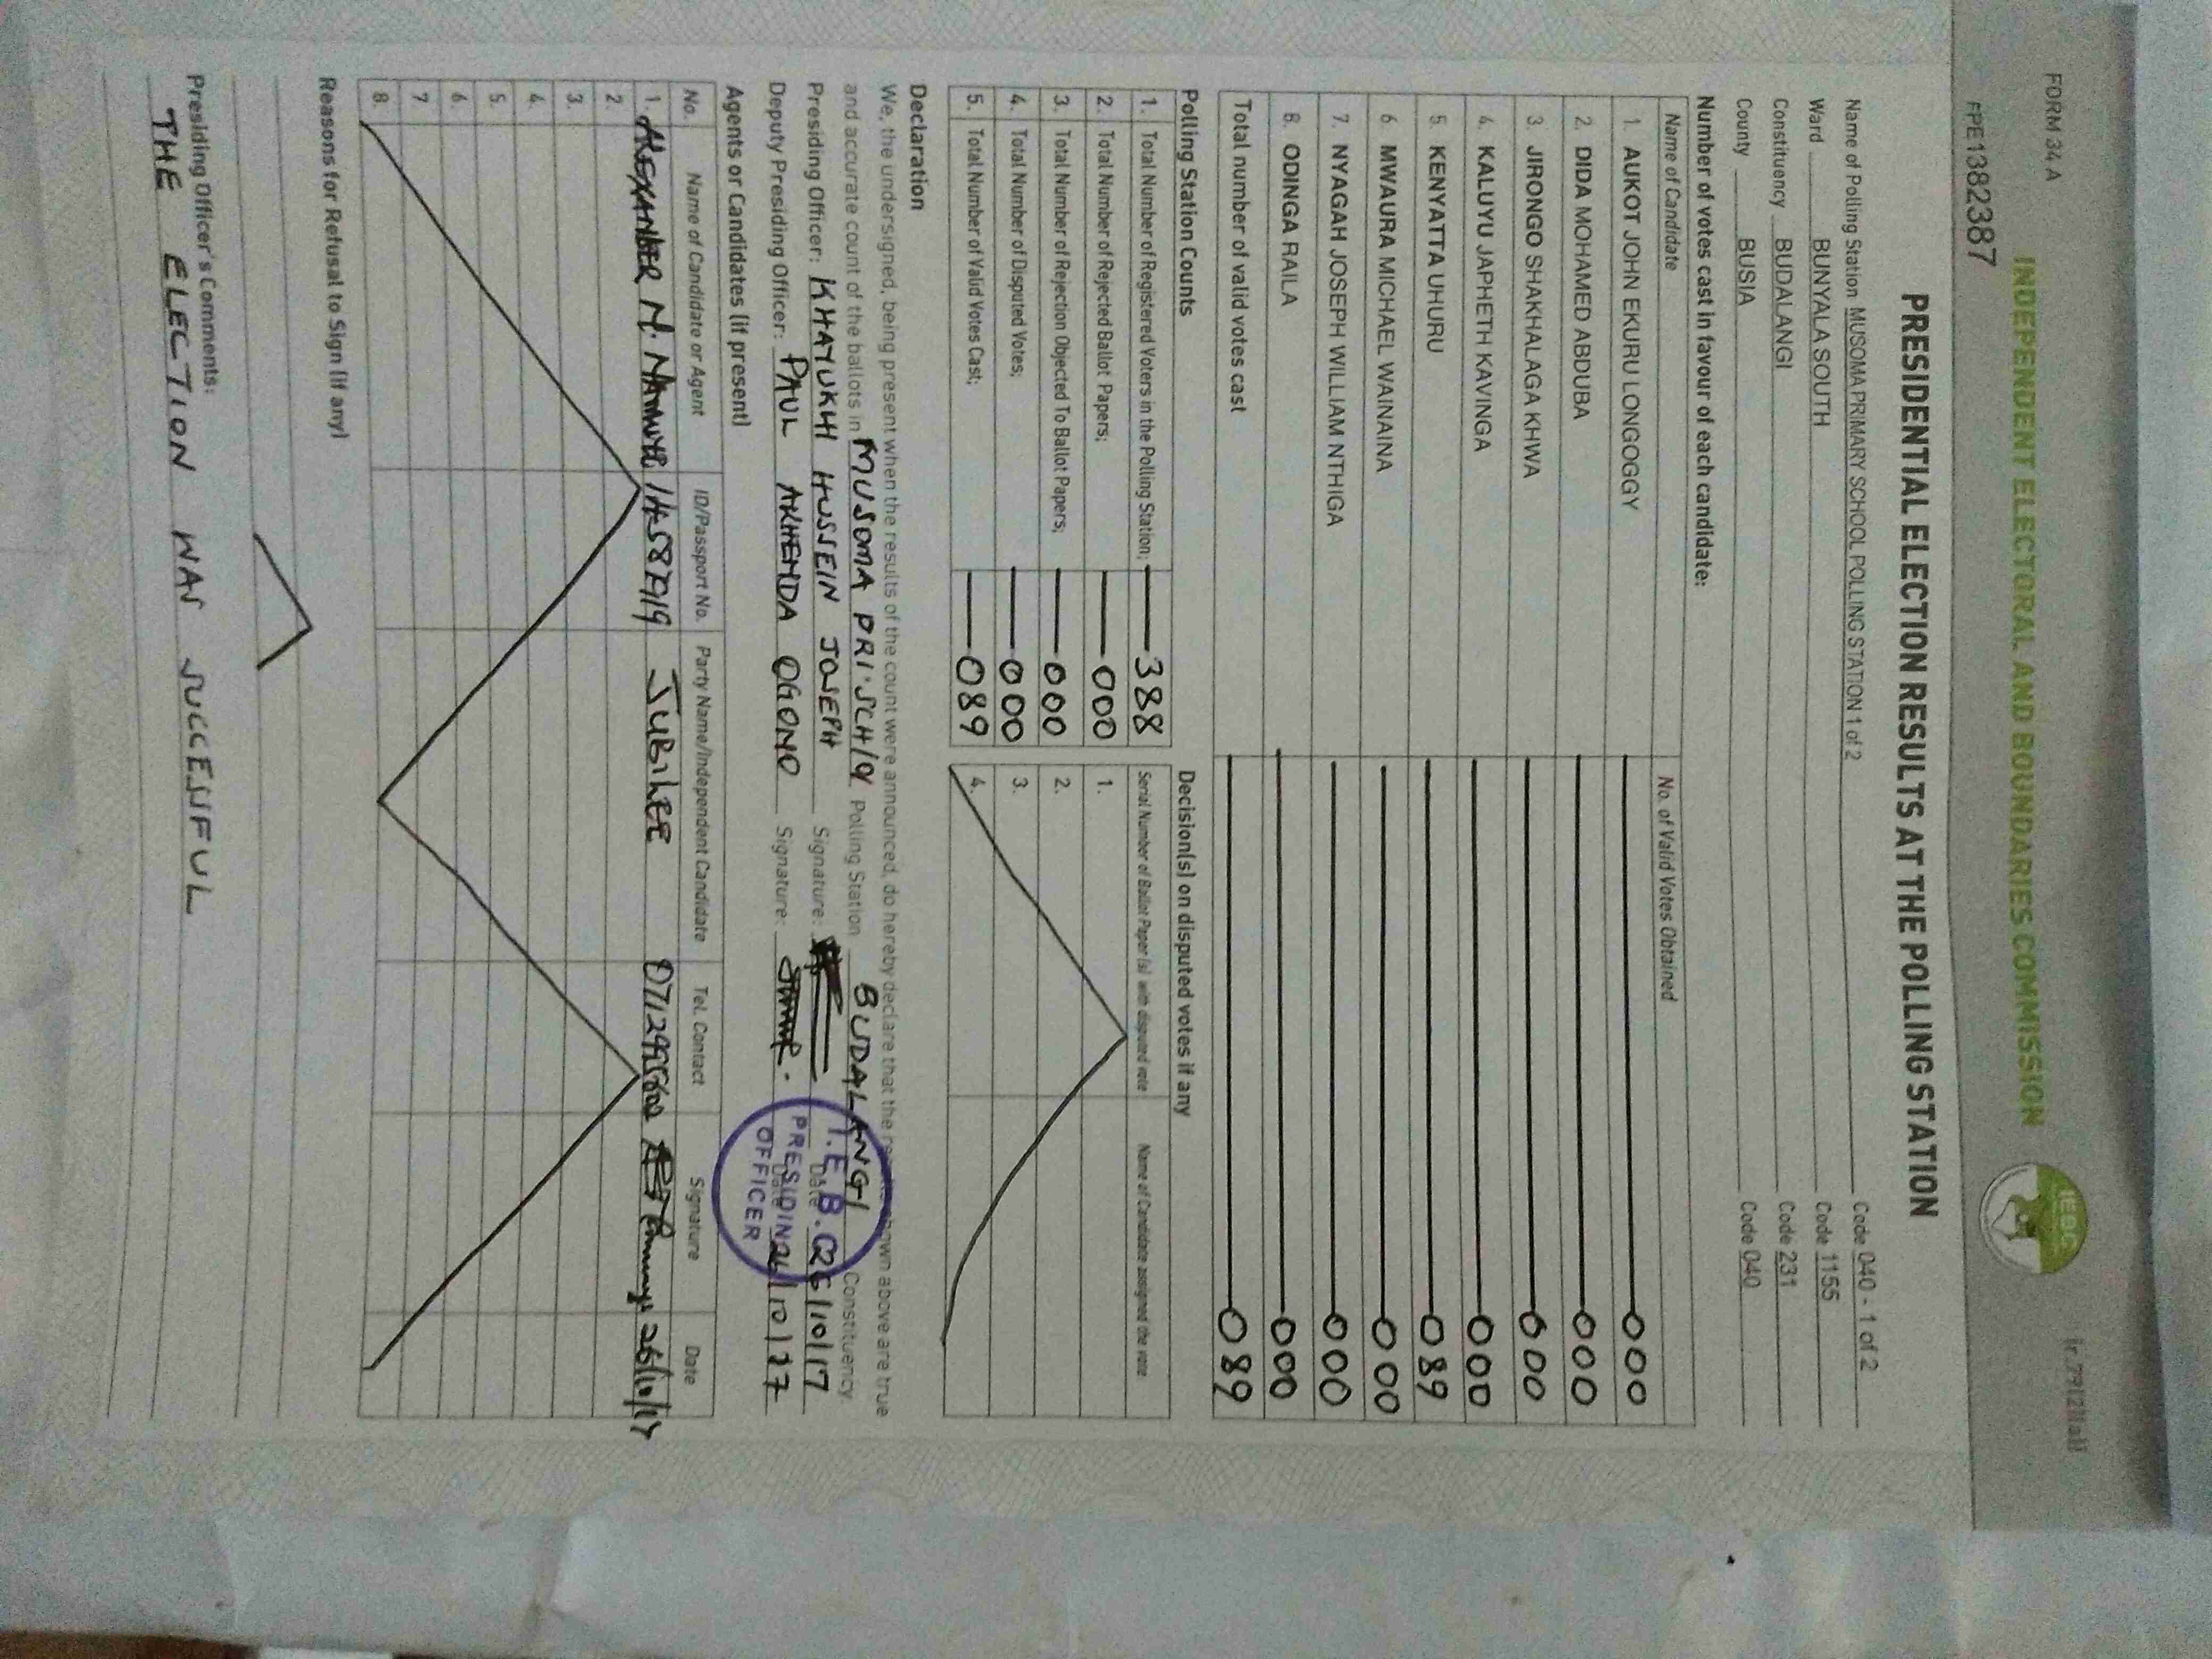 FORM 34 A
FPE1382387
INDEPENDENT ELECTORAL AND BOUNDARIES COMMISSION
IEBC
PRESIDENTIAL ELECTION RESULTS AT THE POLLING STATION
Name of Polling Station MUSOMA PRIMARY SCHOOL POLLING STATION 1 of 2 Code 040 - 1 of 2
Ward BUNYALA SOUTH Code 1155
Constituency BUDALANGI Code 231
County BUSIA Code 040
Number of votes cast in favour of each candidate:
Name of Candidate No. of Valid Votes Obtained
1. AUKOT JOHN EKURU LONGOGGY 000
2. DIDA MOHAMED ABDUBA 000
3. JIRONGO SHAKHALAGA KHWA 000
4. KALUYU JAPHETH KAVINGA 000
5. KENYATTA UHURU 089
6. MWAURA MICHAEL WAINAINA 000
7. NYAGAH JOSEPH WILLIAM NTHIGA 000
8. ODINGA RAILA 000
Total number of valid votes cast 089
Polling Station Counts
1. Total Number of Registered Voters in the Polling Station; 388
2. Total Number of Rejected Ballot Papers; 000
3. Total Number of Rejection Objected To Ballot Papers; 000
4. Total Number of Disputed Votes; 000
5. Total Number of Valid Votes Cast; 089
Decision(s) on disputed votes if any
Serial Number of Ballot Paper (s) with disputed vote Name of Candidate assigned the vote
1.
2.
3.
4.
Declaration
We, the undersigned, being present when the results of the count were announced, do hereby declare that the results shown above are true
and accurate count of the ballots in MUSOMA PRI'SCH/9 Polling Station BUDALANGI Constituency.
Presiding Officer: KHAYUKHI HUSSEIN JOSEPH Signature: Date 26/10/17
Deputy Presiding Officer: PAUL AKHENDA OGONO Signature: Date 26/10/17
I.E.B.C
PRESIDING
OFFICER
Agents or Candidates (if present)
No. Name of Candidate or Agent ID/Passport No. Party Name/Independent Candidate Tel. Contact Signature Date
1. ALEXANDER N. JUBILEE 26/10/17
2
3.
4.
5.
6.
7
8.
Reasons for Refusal to Sign (if any)
Presiding Officer's Comments:
THE ELECTION WAS SUCCESSFUL